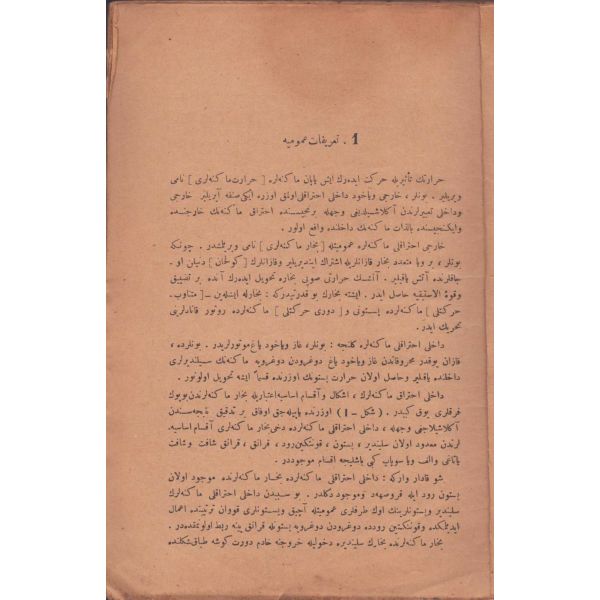 1 . تعریفات عمومیه
حرارتك تأثیریله حرکت ایده‌رك ایش یاپان ماکنه‌لره [ حرارت ماکنه‌لری ] نامی
ویریلیر . بونلر ، خارجی ویاخود داخلی احتراقلی اولمق اوزره ایکی صنفه آیریلیر خارجی
وداخلی تعبیرلرندن آکلاشیلدیغی وجهله برنجیسنده احتراق ماکنه‌نك خارجنده
وایکنجیسنده بالذات ماکنه‌نك داخلنده واقع اولور .
خارجی احتراقلی ماکنه‌لره عمومیتله [ بخار ماکنه‌لری ] نامی ویرلمشدر . چونکه
بونلر ، بر ویا متعدد بخار قازانلریله اشتراك ایتدیریلیر وقازانلرك [ کولخان ] دنیلن او ـ
جاقلرنده آتش یاقیلیر . آتشك حرارتی صویی بخاره تحویل ایده‌رك آنده بر تضییق
وقوهٔ الاستیقیه حاصل ایدر . ایشته بخارك بو قدرتیدرکه : بخارله ایشله‌ین ـ [ متناوب ـ
حرکتلی ] ماکنه‌لرده پستونی و [ دوری حرکتلی ] ماکنه‌لرده روتور قانادلرینی
تحریك ایدر .
داخلی احتراقلی ماکنه‌لره کلنجه : بونلر ، غاز ویاخود یاغ موتورلریدر . بونلرده ،
قازان یوقدر محروقاتدن غاز ویاخود یاغ دوغرودن دوغرویه ماکنه‌نك سیلندیرلری
داخلنده یاقیلیر وحاصل اولان حرارت پستونك اوزرنده قسماً ایشه تحویل اولونور .
داخلی احتراق ماکنه‌لرك ، اشکال و اقسام اساسیه اعتباریله بخار ماکنه‌لرندن بویوك
فرقلری یوق کبیدر . ( شکل ـ 1 ) اوزرنده یاپیله‌جق اوفاق بر تدقیق نتیجه‌سندن
آکلاشیلاجغی وجهله ، داخلی احتراقلی ماکنه‌لرده دخی بخار ماکنه‌لری اقسام اساسیه ـ
لرندن معدود اولان سلیندیر ، پستون ، قونتکتین رود ، قرانق ، قرانق شافت و شافت
یاتاغی والف ویا سوپاپ کبی باشلیجه اقسام موجوددر .
شو قادار وارکه : داخلی احتراقلی ماکنه‌لرده بخار ماکنه‌لرنده موجود اولان
پستون رود ایله قروصهد موجود دکلدر . بو سببدن داخلی احتراقلی ماکنه‌لرك
سلیندیر وپستونلرینك اوك طرفلری عمومیتله آچیق وپستونلری قووان ترتیبنده اعمال
ایدیلمکده وقونتکتین رودده دوغرودن دوغرویه پستونله قرانق پینه ربط اولونمقده‌در .
بخار ماکنه‌لرنده بخارك سلیندیره دخولیله خروجنه خادم دورت کوشه طباق شکلنده